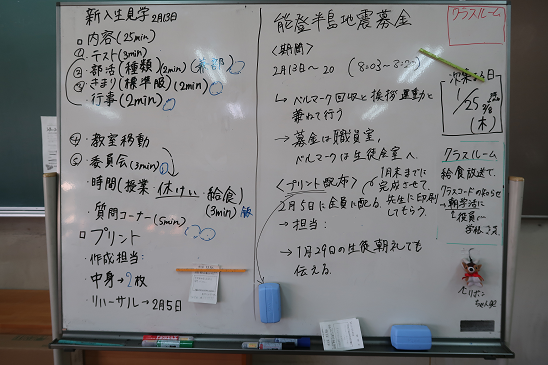 新入生見学 2月13日
□内容(25min)
① テスト(3min)
② 部活(種類)(2min)
③ きまり(標準服)(2min)
・行事(2min)
④ 教室移動
⑤ 委員会(3min)
・時間(授業 休けい 給食)
(3min)
・質問コーナー(5min)
□プリント
・作成担当:
中身→2枚
リハーサル→2月5日
能登半島地震募金
〈期間〉
2月13日〜20
↳ベルマーク回収と挨拶運動と
兼ねて行う
→募金は職員室、
ベルマークは生徒会室へ.
〈プリント配布〉
1月末までに
完成させて、
先生に印刷
してもらう.
2月5日に全員に配る.
→担当:
→1月29日の生徒朝礼でも
伝える.
クラスルーム
1/25
(木)
クラスルーム
給食放送で.